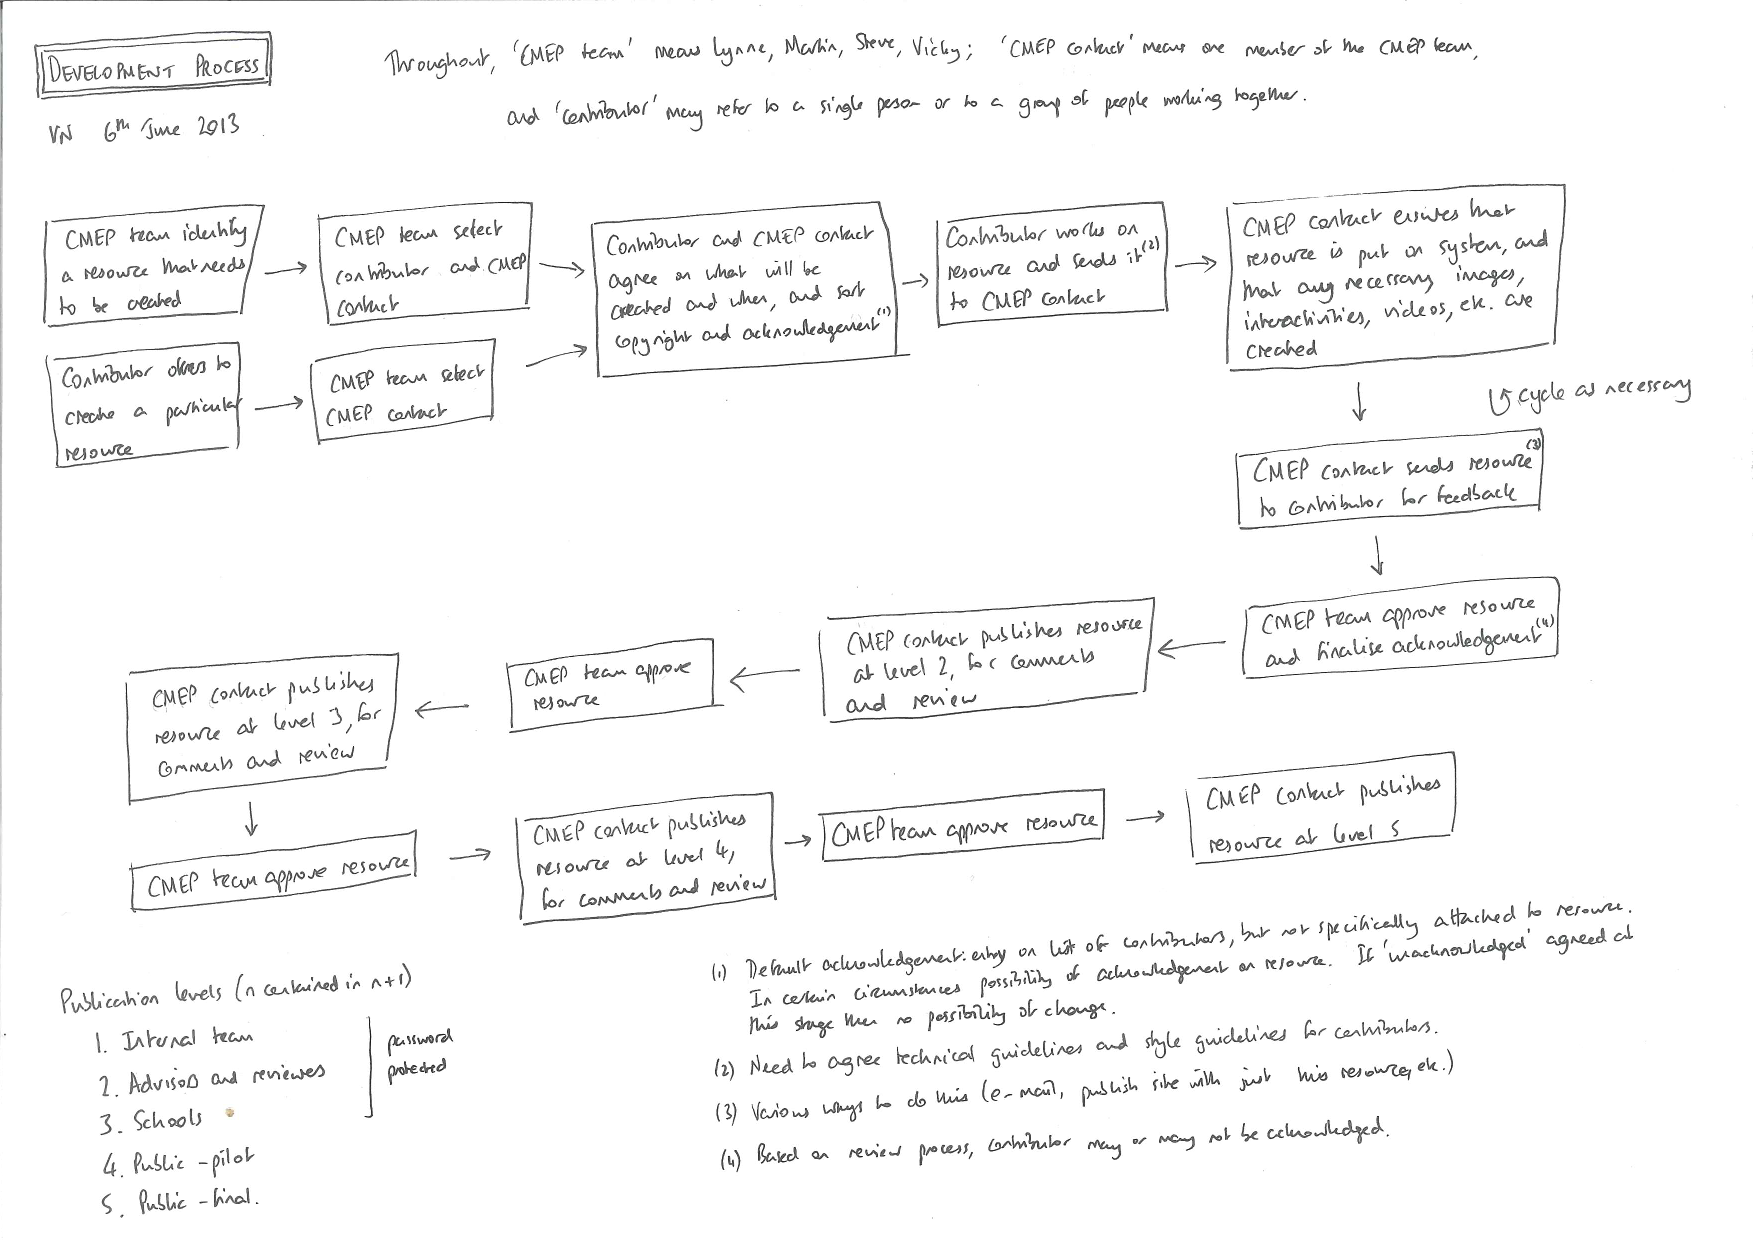 DEVELOPMENT PROCESS
VN 6th June 2013
Throughout, 'CMEP team' means Lynne, Martin, Steve, Vicky; 'CMEP contact' means one member of the CMEP team,
and 'contributor' may refer to a single person or to a group of people working together.
CMEP team identify
a resource that needs
to be created
CMEP team select
contributor and CMEP
contact
Contributor and CMEP contact
agree on what will be
created and when, and sort
copyright and acknowledgement(1)
Contributor works on
resource and sends it(2)
to CMEP contact
CMEP contact ensures that
resource is put on system, and
that any necessary images,
interactivities, videos, etc. are
created
Contributor offers to
create a particular
resource
CMEP team select
CMEP contact
↺ cycle as necessary
CMEP contact sends resource(3)
to contributor for feedback
CMEP team approve resource
and finalise acknowledgement(4)
CMEP contact publishes resource
at level 2, for comments
and review
CMEP team approve
resource
CMEP contact publishes
resource at level 3, for
comments and review
CMEP team approve resource
CMEP contact publishes
resource at level 4,
for comments and review
CMEP team approve resource
CMEP contact publishes
resource at level 5
Publication levels (n contained in n+1)
1. Internal team
2. Advisors and reviewers
3. Schools
4. Public - pilot
5. Public - final.
password
protected
(1) Default acknowledgement: entry on list of contributors, but not specifically attached to resource.
In certain circumstances possibility of acknowledgement on resource. If 'unacknowledged' agreed at
this stage then no possibility of change.
(2) Need to agree technical guidelines and style guidelines for contributors.
(3) Various ways to do this (e-mail, publish site with just this resource, etc.)
(4) Based on review process, contributor may or may not be acknowledged.